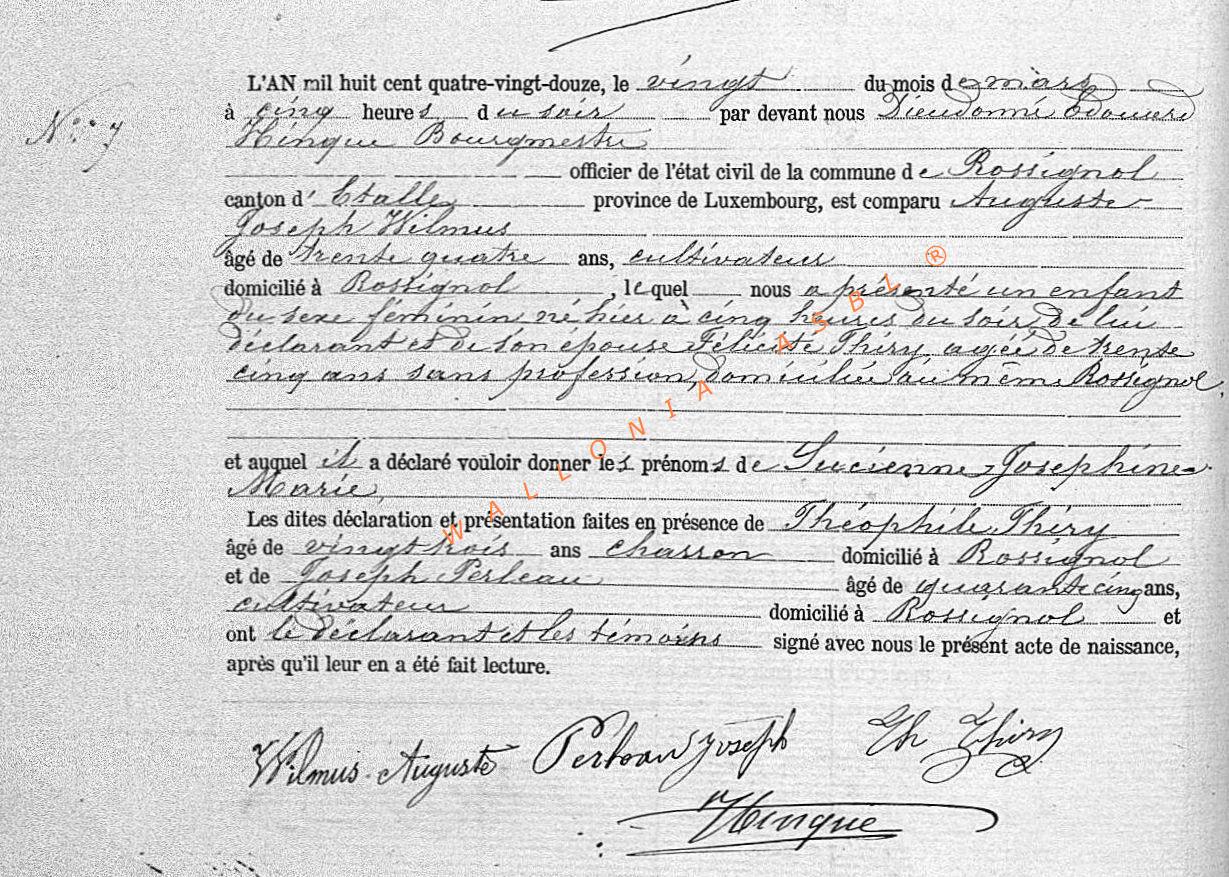 L'AN mil huit cent quatre-vingt-douze, le vingt du mois de mars
à cinq heures du soir par devant nous Dieudonné Edouard
N° 7
Hinque Bourgmestre
officier de l'état civil de la commune de Rossignol
canton d'Etalle province de Luxembourg, est comparu Auguste
Joseph Wilmus
âgé de trente quatre ans, cultivateur
domicilié à Rossignol, lequel nous a présenté un enfant
du sexe féminin né hier à cinq heures du soir, de lui
déclarant et de son épouse Félicité Thiry, agée de trente
cinq ans sans profession, domiciliée au même Rossignol,
et auquel il a déclaré vouloir donner les prénoms de Lucienne-Josephine-
Marie,
Les dites déclaration et présentation faites en présence de Théophile Thiry
âgé de vingt trois ans charron domicilié à Rossignol
et de Joseph Perleau âgé de quarante cinq ans,
cultivateur domicilié à Rossignol et
ont le déclarant et les témoins signé avec nous le présent acte de naissance,
après qu'il leur en a été fait lecture.
Wilmus Auguste Perleau Joseph Th Thiry
Hinque
WALLONIA ASBL ®